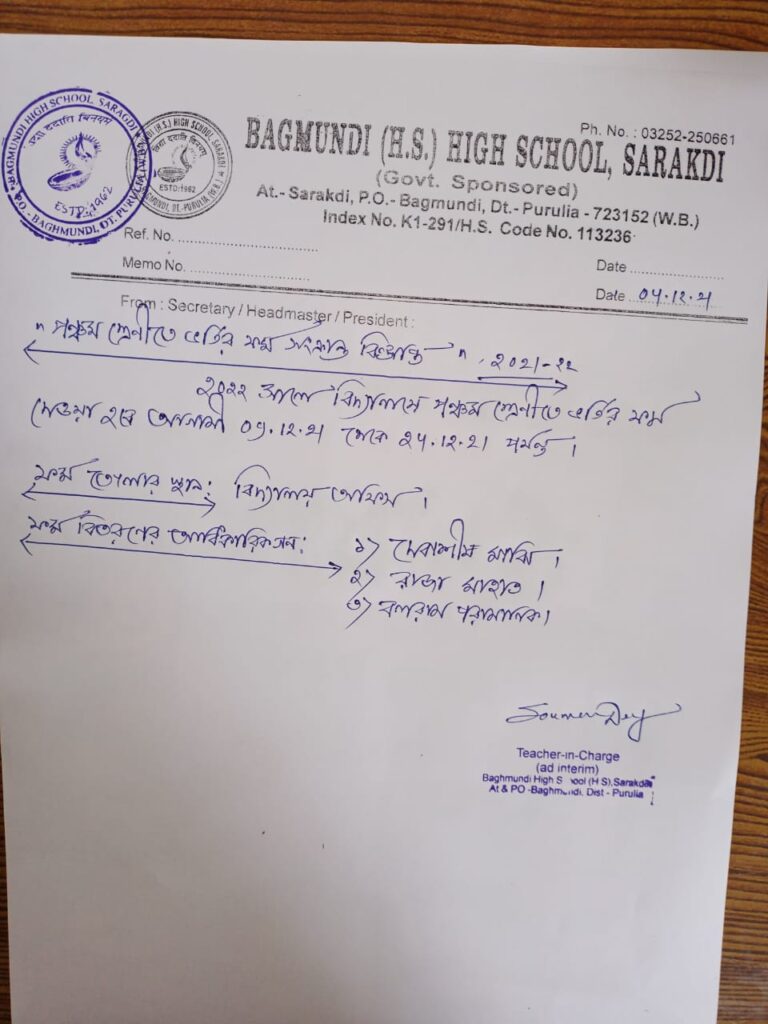 BAGMUNDI HIGH SCHOOL SARAGDI
ESTD-1962
P.O.- BAGHMUNDI, DT. PURULIA (W.B.)
(H.S.) HIGH SCHOOL SARAKDI
ESTD:1962
Ph. No. : 03252-250661
BAGMUNDI (H.S.) HIGH SCHOOL, SARAKDI
(Govt. Sponsored)
At.- Sarakdi, P.O.- Bagmundi, Dt.- Purulia - 723152 (W.B.)
Index No. K1-291/H.S. Code No. 113236
Ref. No.
Memo No.
Date
Date
From : Secretary / Headmaster / President :
"পঞ্চম শ্রেণীতে ভর্তির ফর্ম সংক্রান্ত বিজ্ঞপ্তি" 2021-22
২০২২ সালে বিদ্যালয়ে পঞ্চম শ্রেণীতে ভর্তির ফর্ম
দেওয়া হবে আগামী থেকে পর্যন্ত।
ফর্ম তোলার স্থান: বিদ্যালয় অফিস।
ফর্ম বিতরণের আধিকারিকগন: ১) দেবাশীষ মাঝি।
২) রাজা মাহাত।
৩) বলরাম পরামানিক।
Soumen Dey
Teacher-in-Charge
(ad interim)
Baghmundi High School (H S), Sarakdi
At & PO -Baghmundi, Dist - Purulia